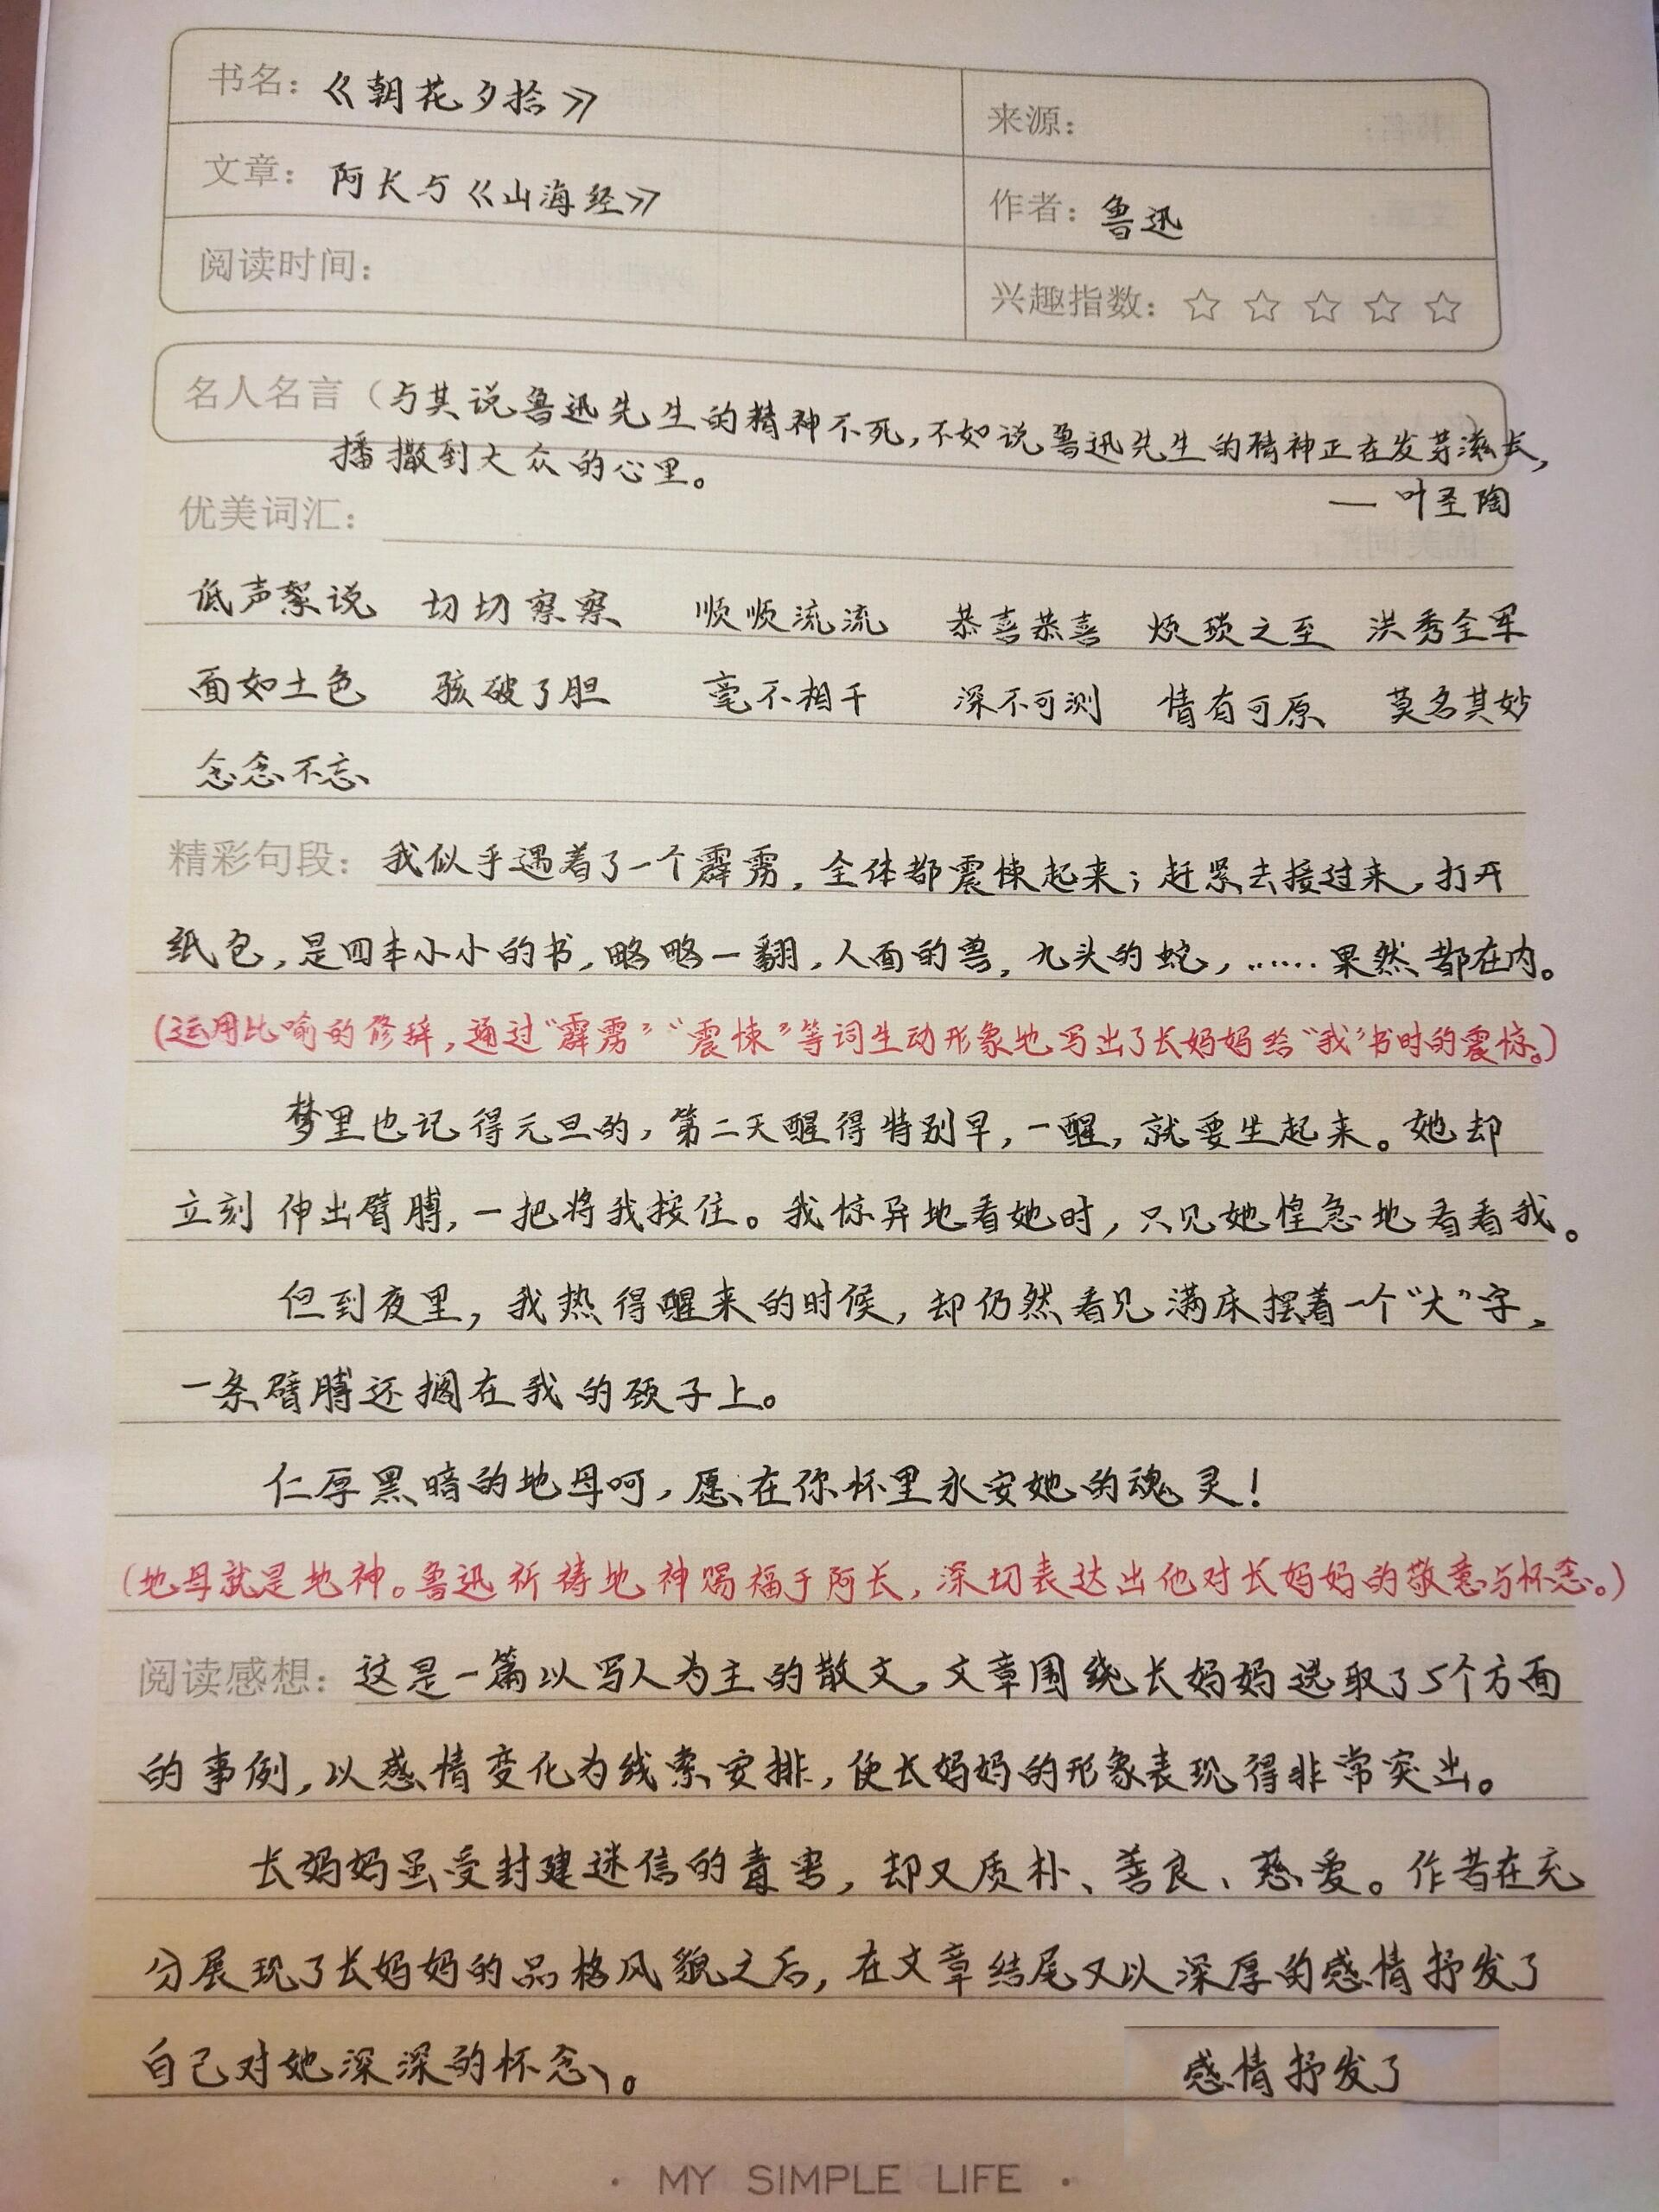 书名：《朝花夕拾》
来源：
文章：阿长与《山海经》
作者：鲁迅
阅读时间：
兴趣指数：☆ ☆ ☆ ☆ ☆
名人名言（与其说鲁迅先生的精神不死，不如说鲁迅先生的精神正在发芽滋长，
播撒到大众的心里。
— 叶圣陶
优美词汇：
低声絮说 切切察察 顺顺流流 恭喜恭喜 烦琐之至 洪秀全军
面如土色 骇破了胆 毫不相干 深不可测 情有可原 莫名其妙
念念不忘
精彩句段：我似乎遇着了一个霹雳，全体都震悚起来；赶紧去接过来，打开
纸包，是四本小小的书，略略一翻，人面的兽，九头的蛇，……果然都在内。
（运用比喻的修辞，通过“霹雳”“震悚”等词生动形象地写出了长妈妈给“我”书时的震惊。）
梦里也记得元旦的，第二天醒得特别早，一醒，就要坐起来。她却
立刻伸出臂膊，一把将我按住。我惊异地看她时，只见她惶急地看着我。
但到夜里，我热得醒来的时候，却仍然看见满床摆着一个“大”字，
一条臂膊还搁在我的颈子上。
仁厚黑暗的地母呵，愿在你怀里永安她的魂灵！
（地母就是地神。鲁迅祈祷地神赐福于阿长，深切表达出他对长妈妈的敬意与怀念。）
阅读感想：这是一篇以写人为主的散文，文章围绕长妈妈选取了5个方面
的事例，以感情变化为线索安排，使长妈妈的形象表现得非常突出。
长妈妈虽受封建迷信的毒害，却又质朴、善良、慈爱。作者在充
分展现了长妈妈的品格风貌之后，在文章结尾又以深厚的感情抒发了
自己对她深深的怀念。
感情抒发了
· MY SIMPLE LIFE ·